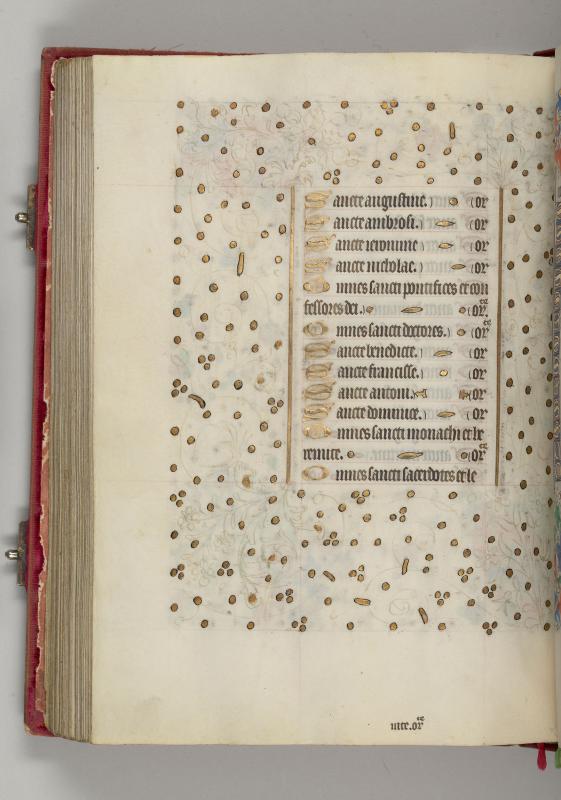 Sancte augustine. or
Sancte ambrosi. or
Sancte ieronime or
Sancte nicholae. or
Omnes sancti pontifices et con
fessores dei. or.
Omnes sancti doctores. or
Sancte benedicte. or
Sancte francisse. or
Sancte antoni. or
Sancte dominice. or
Omnes sancti monachi et he
remite. or
Omnes sancti sacerdotes et le
uite. or